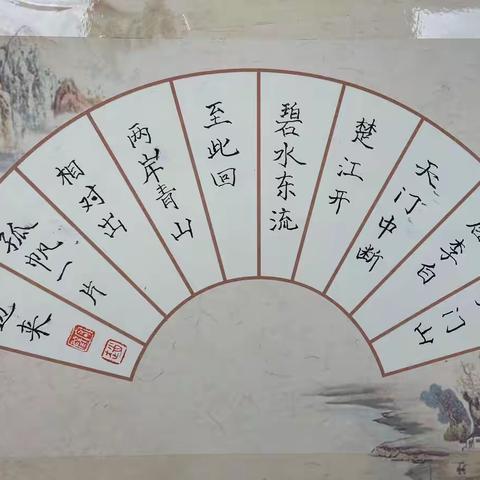 门山
唐李白
天门中断
楚江开
碧水东流
至此回
两岸青山
相对出
孤帆一片
边来